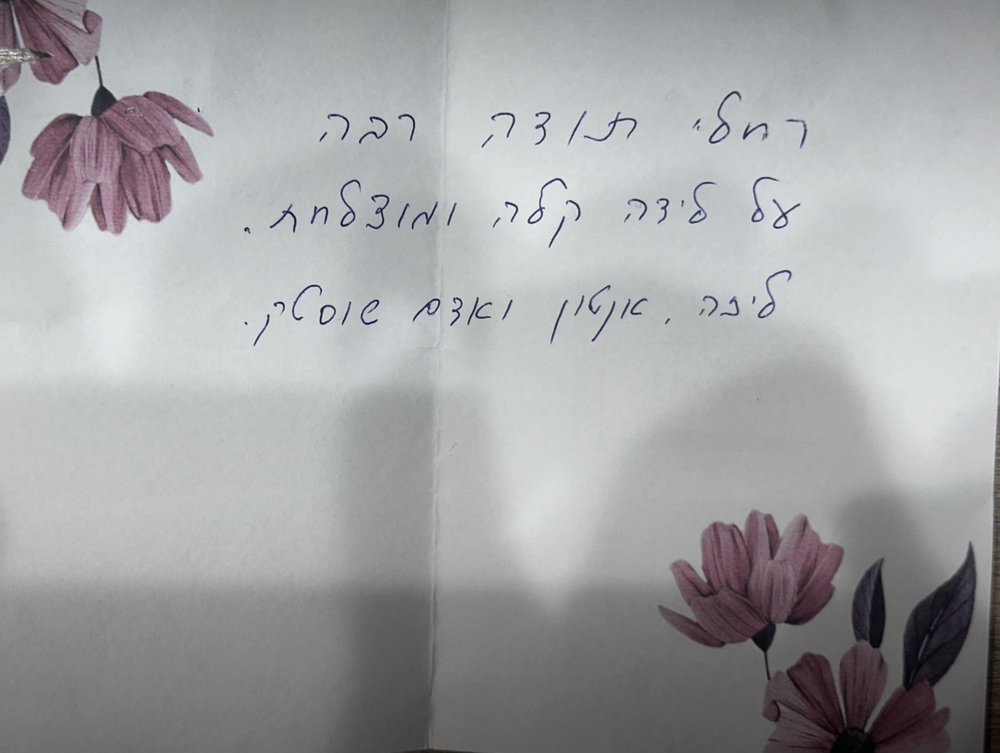 רחלי תודה רבה
על לידה קלה ומוצלחת.
ליזה, אנטון ואדם שוסטק.